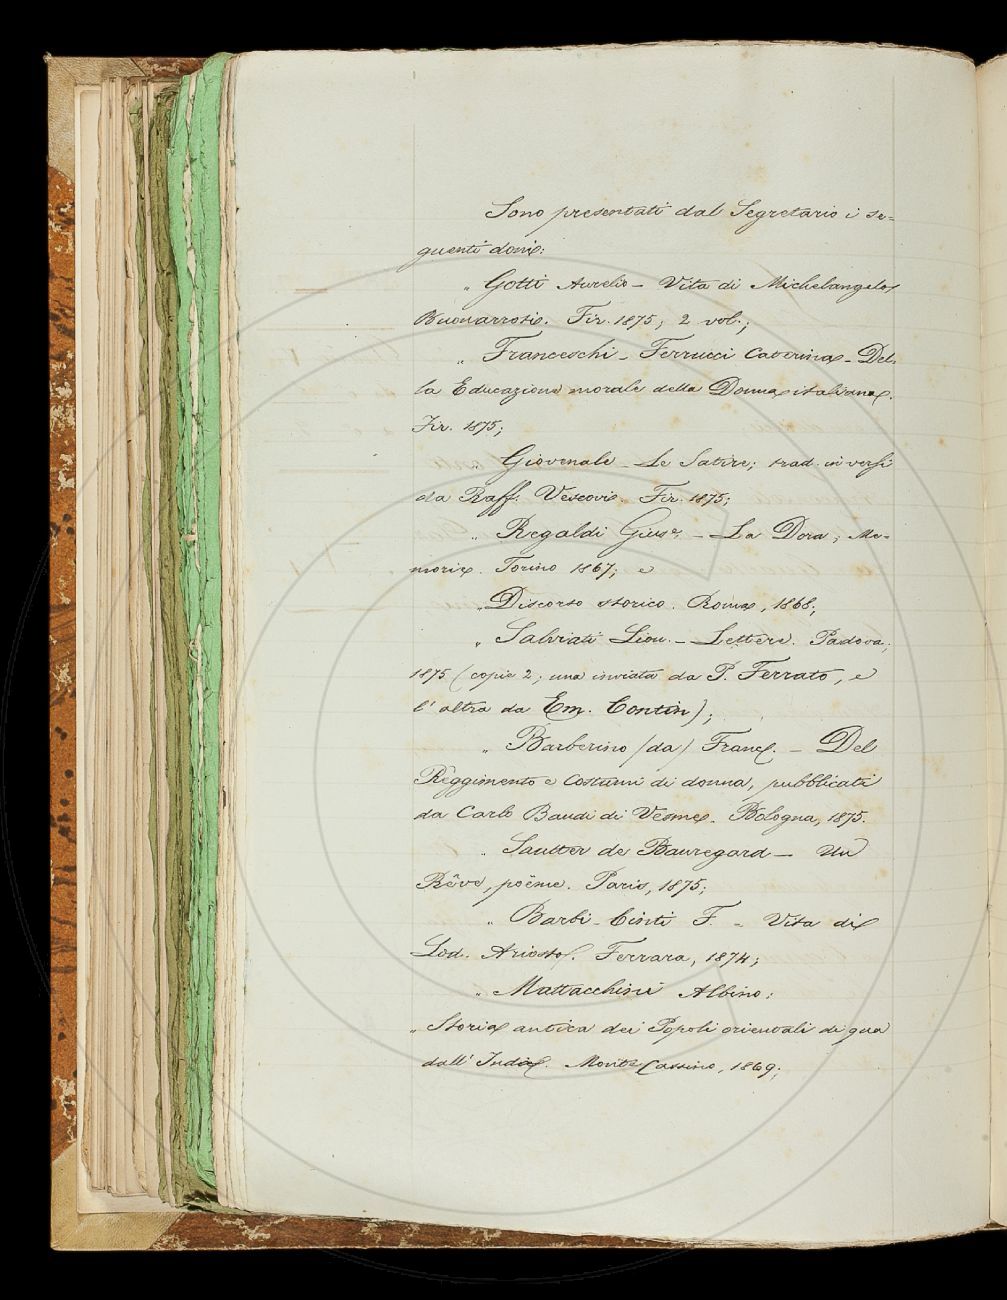 Sono presentati dal Segretario i se-
guenti doni:
„ Gotti Aurelio – Vita di Michelangelo
Buonarroti. Fir. 1875, 2 vol.;
„ Franceschi – Ferrucci Caterina – Del-
la Educazione morale della Donna italiana.
Fir. 1875;
Giovenale – Le Satire; trad. in versi
da Raff. Vescovi. Fir. 1875;
„ Regaldi Gius.e – La Dora, Me-
morie. Torino 1867; e
„ Discorso storico. Roma, 1868;
„ Salviati Lion. – Lettere. Padova,
1875 (copie 2; una inviata da P. Ferrato, e
l' altra da Em. Contin);
„ Barberino (da) Franc. – Del
Reggimento e Costumi di donna, pubblicati
da Carlo Baudi di Vesme. Bologna, 1875.
„ Saulter de Beauregard – Un
Rêve, poème. Paris, 1875;
„ Barbi – Cinti F. – Vita di
Lod. Ariosto. Ferrara, 1874;
„ Mattacchini Albino:
„ Storia antica dei Popoli orientali di qua
dall' India. Monte Cassino, 1869;